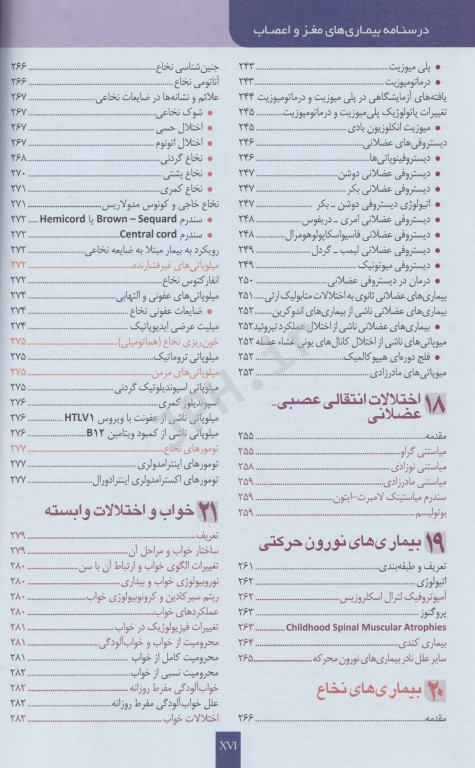 درسنامه بیماری‌های مغز و اعصاب
● پلی میوزیت ۲۴۳
● درماتومیوزیت ۲۴۳
یافته‌های آزمایشگاهی در پلی میوزیت و درماتومیوزیت ۲۴۴
تغییرات پاتولوژیک پلی‌میوزیت و درماتومیوزیت ۲۴۵
● میوزیت انکلوزیون بادی ۲۴۵
دیستروفی‌های عضلانی ۲۴۶
● دیستروفینوپاتی‌ها ۲۴۶
● دیستروفی عضلانی دوشن ۲۴۷
● دیستروفی عضلانی بکر ۲۴۷
● اتیولوژی دیستروفی دوشن - بکر ۲۴۷
● دیستروفی عضلانی امری - دریفوس ۲۴۸
● دیستروفی عضلانی فاسیواسکاپولوهومرال ۲۴۸
● دیستروفی عضلانی لیمب - گردل ۲۴۹
● دیستروفی میوتونیک ۲۴۹
● درمان در دیستروفی عضلانی ۲۵۰
بیماری‌های عضلانی ثانوی به اختلالات متابولیک ارثی ۲۵۱
بیماری‌های عضلانی ناشی از بیماری‌های اندوکرین ۲۵۲
● بیماری‌های عضلانی ناشی از اختلال عملکرد تیروئید ۲۵۲
میوپاتی‌های ناشی از اختلال کانال‌های یونی غشاء عضله ۲۵۲
● فلج دوره‌ای هیپوکالمیک ۲۵۲
میوپاتی‌های مادرزادی ۲۵۳
۱۸ اختلالات انتقالی عصبی_
عضلانی
مقدمه ۲۵۵
میاستنی گراو ۲۵۵
میاستنی نوزادی ۲۵۸
میاستنی مادرزادی ۲۵۹
سندرم میاستنیک لامبرت-ایتون ۲۵۹
بوتولیسم ۲۵۹
۱۹ بیماری‌های نورون حرکتی
تعریف و طبقه‌بندی ۲۶۱
اتیولوژی ۲۶۲
آمیوتروفیک لترال اسکلروزیس ۲۶۲
پروگنوز ۲۶۳
Childhood Spinal Muscular Atrophies ۲۶۳
بیماری کندی ۲۶۴
سایر علل نادر بیماری‌های نورون محرکه ۲۶۵
۲۰ بیماری‌های نخاع
مقدمه ۲۶۶
جنین‌شناسی نخاع ۲۶۶
آناتومی نخاع ۲۶۶
علائم و نشانه‌ها در ضایعات نخاعی ۲۶۷
● شوک نخاعی ۲۶۷
● اختلال حسی ۲۶۷
● اختلال اتونوم ۲۶۷
● نخاع گردنی ۲۶۸
● نخاع پشتی ۲۷۰
● نخاع کمری ۲۷۱
نخاع خاجی و کونوس مدولاریس ۲۷۱
● سندرم Brown – Sequard یا Hemicord ۲۷۲
● سندرم Central cord ۲۷۲
رویکرد به بیمار مبتلا به ضایعه نخاعی ۲۷۲
میلوپاتی‌های غیرفشارنده ۲۷۲
انفارکتوس نخاع ۲۷۲
میلوپاتی‌های عفونی و التهابی ۲۷۴
● ضایعات عفونی نخاع ۲۷۴
میلیت عرضی ایدیوپاتیک ۲۷۴
خون‌ریزی نخاع (هماتومیلی) ۲۷۵
میلوپاتی تروماتیک ۲۷۵
میلوپاتی‌های مزمن ۲۷۵
میلوپاتی اسپوندیلوتیک گردنی ۲۷۵
اسپوندیلوز کمری ۲۷۶
میلوپاتی ناشی از عفونت با ویروس HTLV۱ ۲۷۶
میلوپاتی ناشی از کمبود ویتامین B۱۲ ۲۷۶
تومورهای نخاع ۲۷۷
تومورهای اینترامدولری ۲۷۷
تومورهای اکسترامدولری اینترادورال ۲۷۷
۲۱ خواب و اختلالات وابسته
تعریف ۲۷۹
ساختار خواب و مراحل آن ۲۷۹
تغییرات الگوی خواب و ارتباط آن با سن ۲۸۰
نوروبیولوژی خواب و بیداری ۲۸۰
ریتم سیرکادین و کرونوبیولوژی خواب ۲۸۰
عملکردهای خواب ۲۸۰
تغییرات فیزیولوژیک در خواب ۲۸۱
محرومیت از خواب و خواب‌آلودگی ۲۸۱
محرومیت کامل از خواب ۲۸۱
محرومیت نسبی از خواب ۲۸۲
خواب‌آلودگی مفرط روزانه ۲۸۲
علل خواب‌آلودگی مفرط روزانه ۲۸۲
اختلالات خواب ۲۸۲
XVI